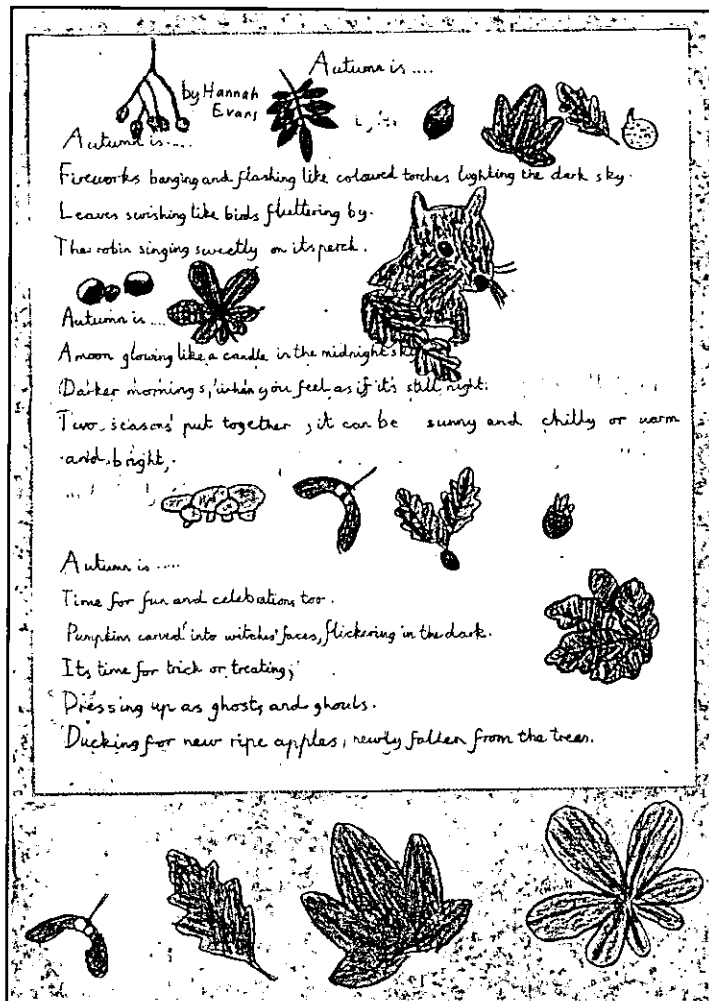 Autumn is ....
by Hannah
Evans
Autumn is ....
Fireworks banging and flashing like coloured torches lighting the dark sky.
Leaves swishing like birds fluttering by.
The robin singing sweetly on its perch.
Autumn is ....
A moon glowing like a candle in the midnight sky
Darker mornings, when you feel as if it's still night.
Two seasons put together, it can be sunny and chilly or warm
and bright,
Autumn is ....
Time for fun and celebrations too.
Pumpkins carved into witches' faces, flickering in the dark.
Its time for trick or treating,
Dressing up as ghosts and ghouls.
Ducking for new ripe apples, newly fallen from the trees.